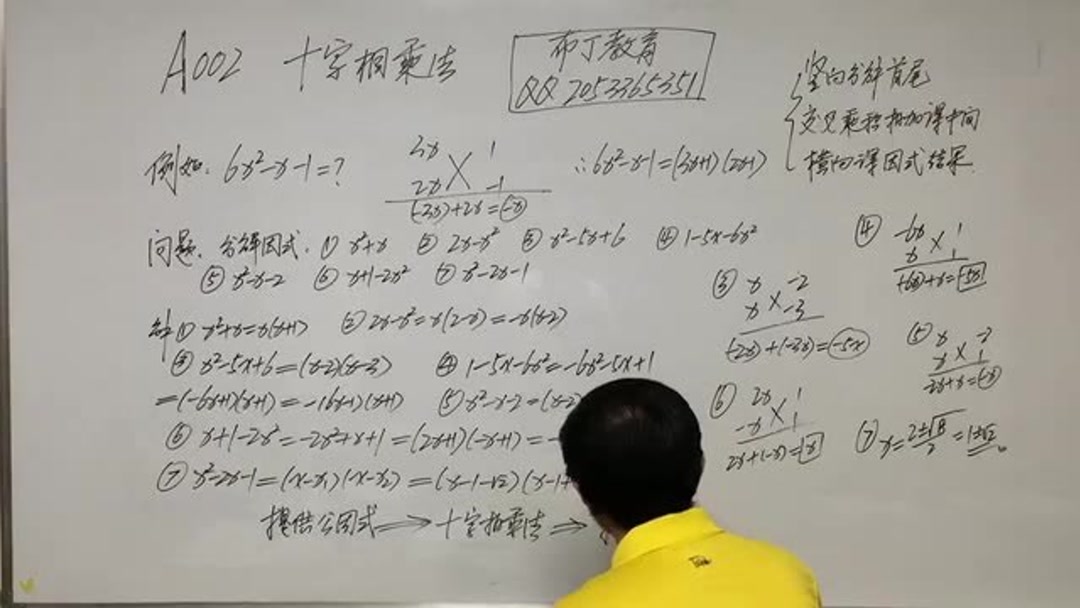 A002 十字相乘法
布丁教育
QQ 2053365351
竖向分解首尾
交叉乘积相加课中间
横向课因式结果
例如: 6x²-x-1=?
3x 1
2x -1
(-3x)+2x=(-x)
∴6x²-x-1=(3x+1)(2x-1)
问题、分解因式: ① x²+x ② 2x-x² ③ x²-5x+6 ④ 1-5x-6x²
⑤ x²-x-2 ⑥ x+1-2x² ⑦ x²-2x-1
解① x²+x=x(x+1) ② 2x-x²=x(2-x)=-x(x-2)
x²-5x+6=(x-2)(x-3) ④ 1-5x-6x²=-6x²-5x+1
=(-6x+1)(x+1)=-(6x-1)(x+1) ⑤ x²-x-2=(x-2)
⑥ x+1-2x²=-2x²+x+1=(2x+1)(-x+1)=-
⑦ x²-2x-1=(x-x₁)(x-x₂)=(x-1-√2)(x-1+
提供公因式⇒十字相乘法⇒
③ x -2
x -3
(-2x)+(-3x)=(-5x)
④ -6x 1
x 1
(-6x)+x=-5x
⑤ x -2
x 1
-2x+x=(-x)
⑥ 2x 1
-x 1
2x+(-x)=x
⑦ x=(2±√8)/2=1±√2。